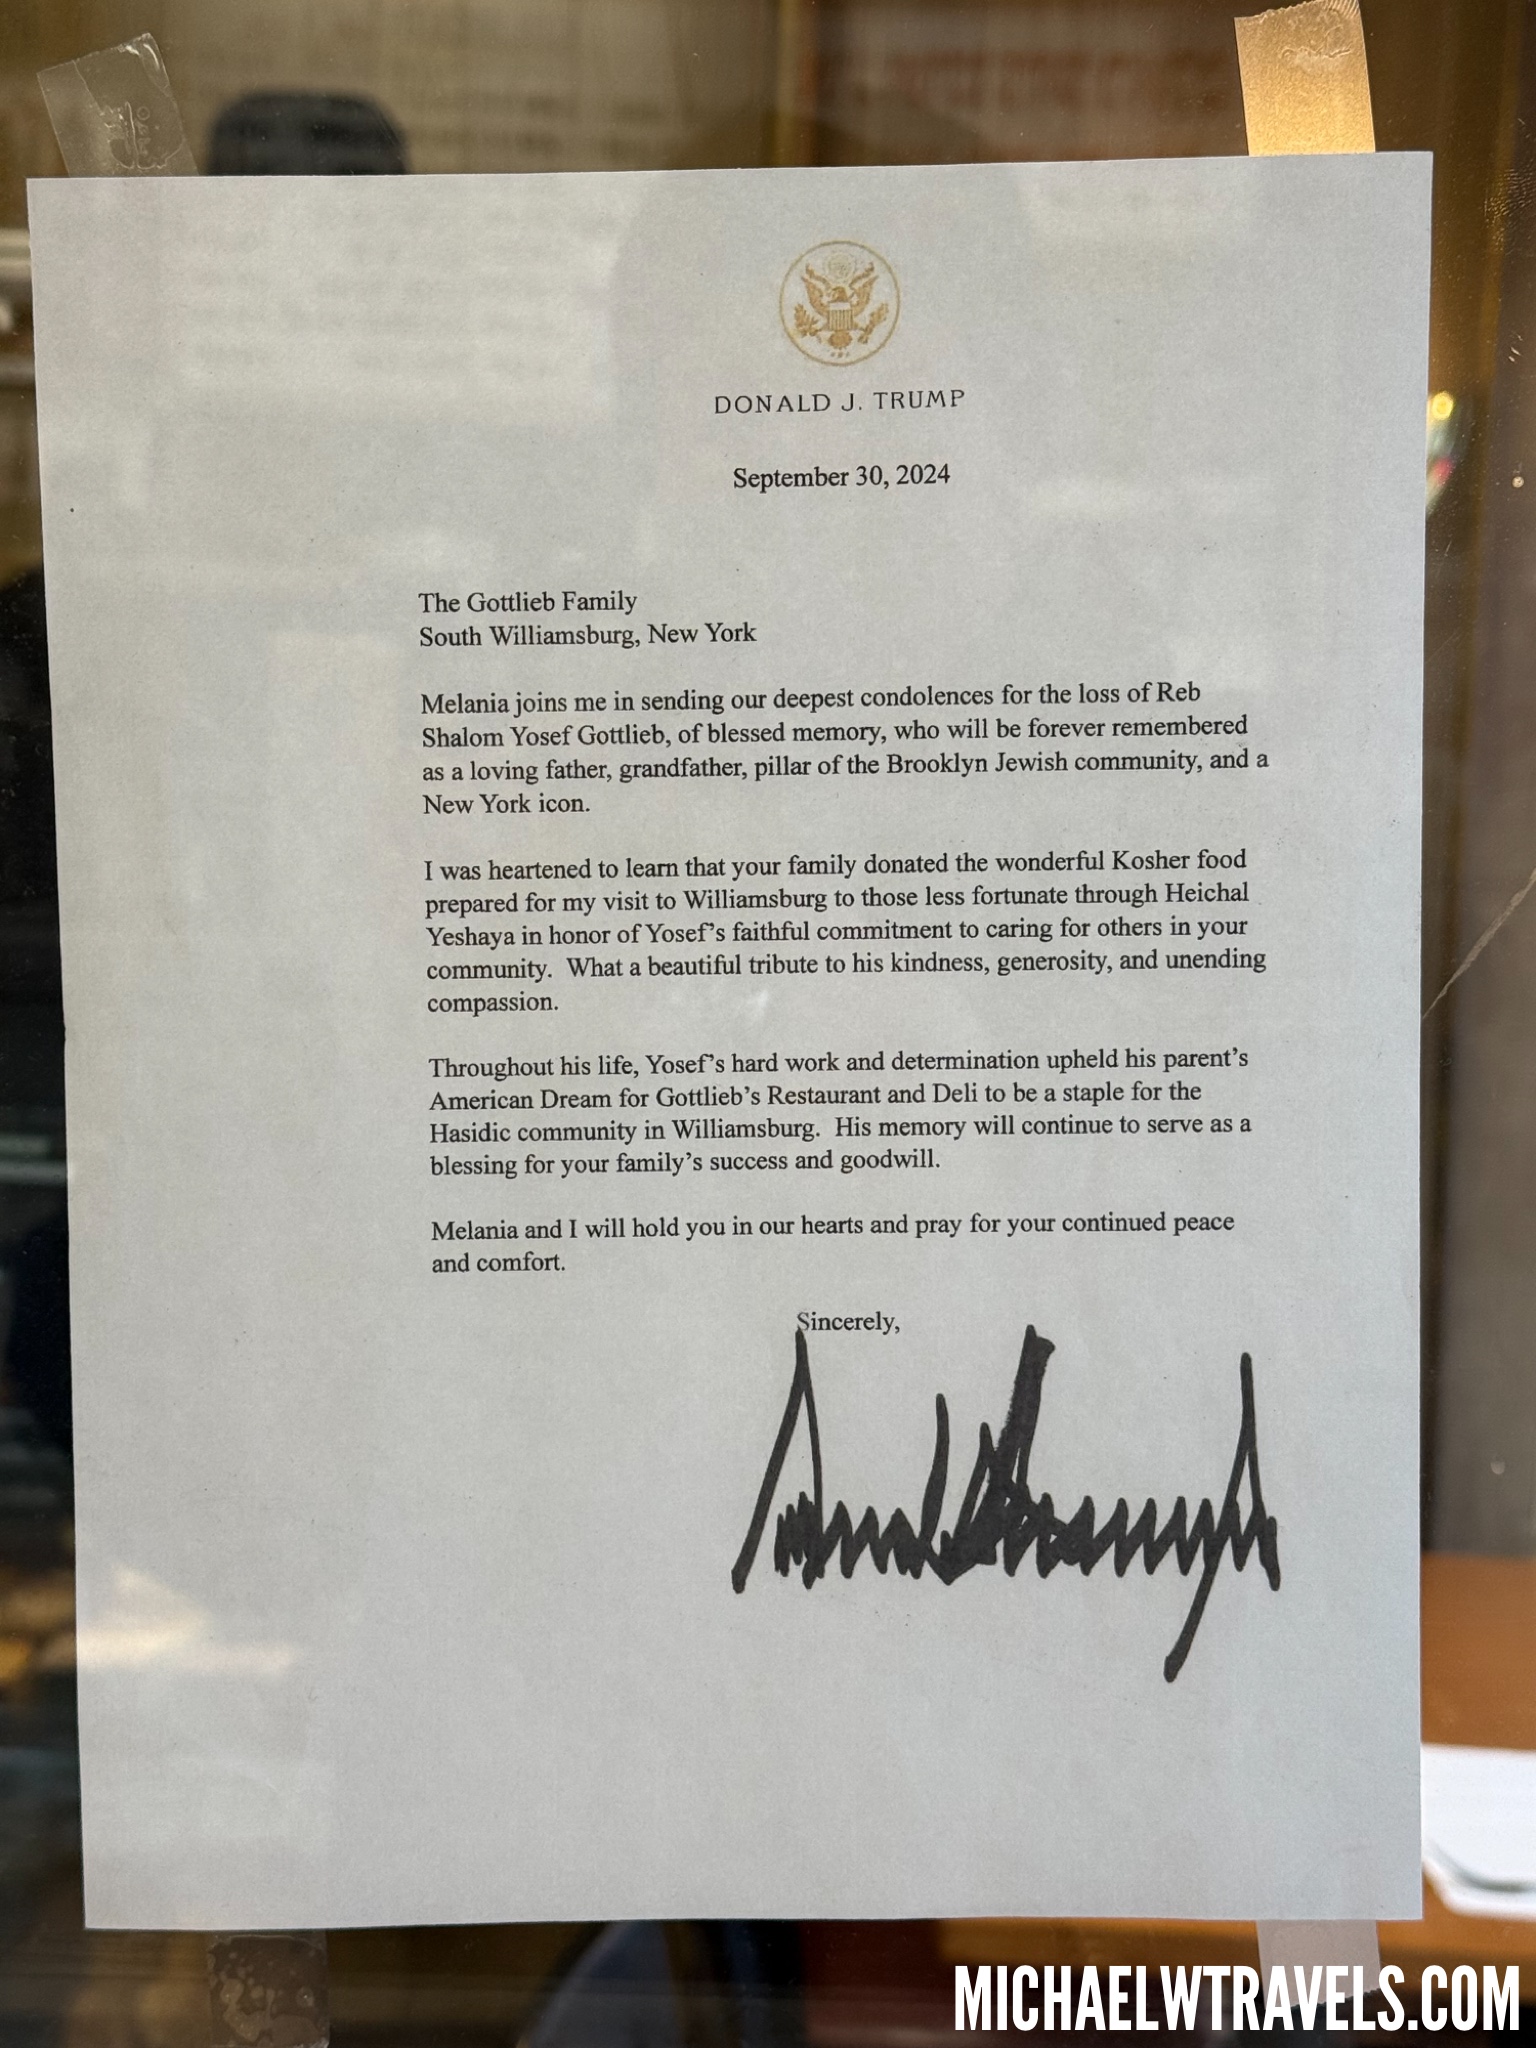 DONALD J. TRUMP
September 30, 2024
The Gottlieb Family
South Williamsburg, New York
Melania joins me in sending our deepest condolences for the loss of Reb
Shalom Yosef Gottlieb, of blessed memory, who will be forever remembered
as a loving father, grandfather, pillar of the Brooklyn Jewish community, and a
New York icon.
I was heartened to learn that your family donated the wonderful Kosher food
prepared for my visit to Williamsburg to those less fortunate through Heichal
Yeshaya in honor of Yosef's faithful commitment to caring for others in your
community.  What a beautiful tribute to his kindness, generosity, and unending
compassion.
Throughout his life, Yosef's hard work and determination upheld his parent's
American Dream for Gottlieb's Restaurant and Deli to be a staple for the
Hasidic community in Williamsburg.  His memory will continue to serve as a
blessing for your family's success and goodwill.
Melania and I will hold you in our hearts and pray for your continued peace
and comfort.
Sincerely,
MICHAELWTRAVELS.COM